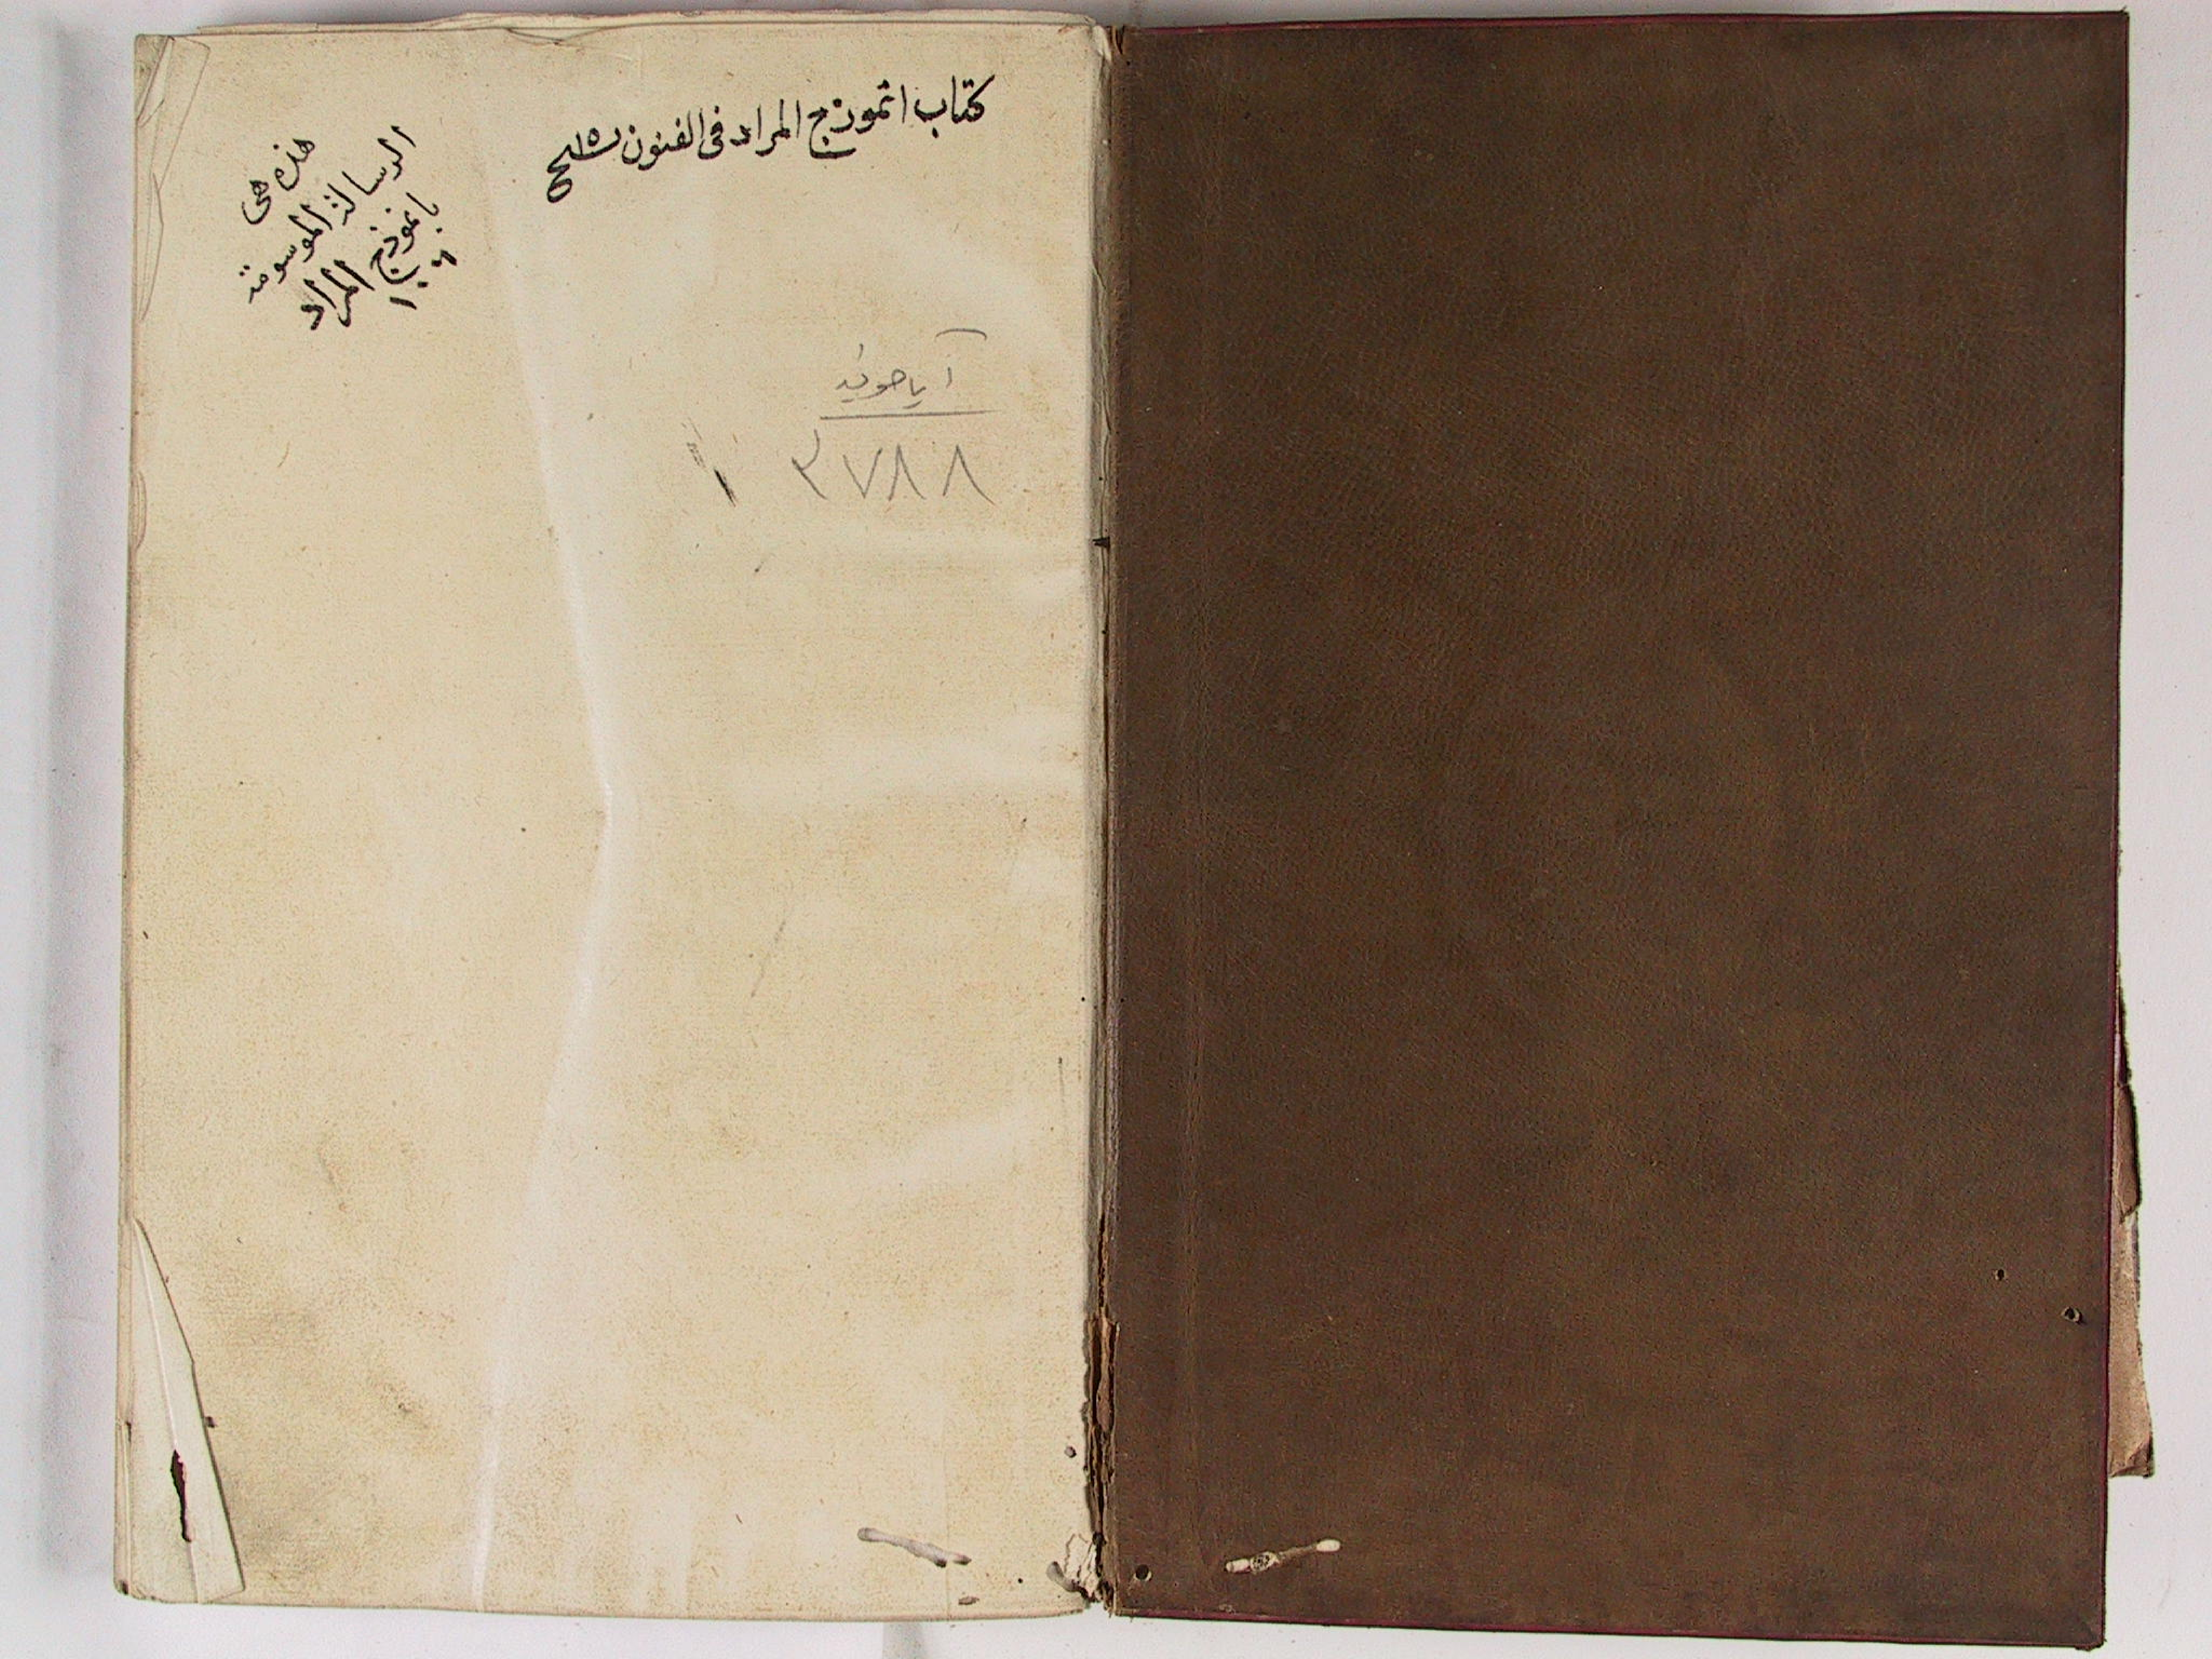 كتاب انموذج المراد فى الفنون
هذه هى
الرسالة الموسومة
بانموذج المراد
آياصوفيه
٣٧٨٨